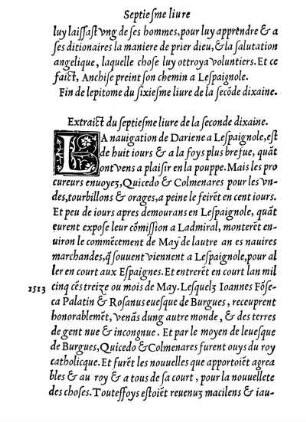 Septiesme liure
luy laissast vng de ses hommes, pour luy apprendre & a
ses ditionaires la maniere de prier dieu, & la salutation
angelique, laquelle chose luy ottroya voluntiers. Et ce
faict, Anchise preint son chemin a Lespaignole.
Fin de lepitome du sixiesme liure de la secōde dixaine.
Extraict du septiesme liure de la seconde dixaine.
LA nauigation de Dariene a Lespaignole, est
de huit iours & a la foys plus brefue, quāt
ont vens a plaisir en la pouppe. Mais les pro
cureurs enuoyez, Quicedo & Colmenares pour les vn-
des, tourbillons & orages, a peine le feirēt en cent iours.
Et peu de iours apres demourans en Lespaignole, quāt
eurent expose leur cōmission a Ladmiral, monterēt en-
uiron le commēcemēt de May de lautre an es nauires
marchandes, q̃ souuent viennent a Lespaignole, pour al
ler en court aux Espaignes. Et entrerēt en court lan mil
1513 cinq cēs treize ou mois de May. Lesquelz Ioannes Fōse-
ca Palatin & Rosanus euesque de Burgues, receuprent
honorablemēt, venās dung autre monde, & des terres
de gent nue & incongnue. Et par le moyen de leuesque
de Burgues, Quicedo & Colmenares furent ouys du roy
catholicque. Et furēt les nouuelles que apportoiēt agrea
bles & au roy & a tous de sa court, pour la nouuellete
des choses. Toutesfoys estoiēt reuenuz macilens & iau-